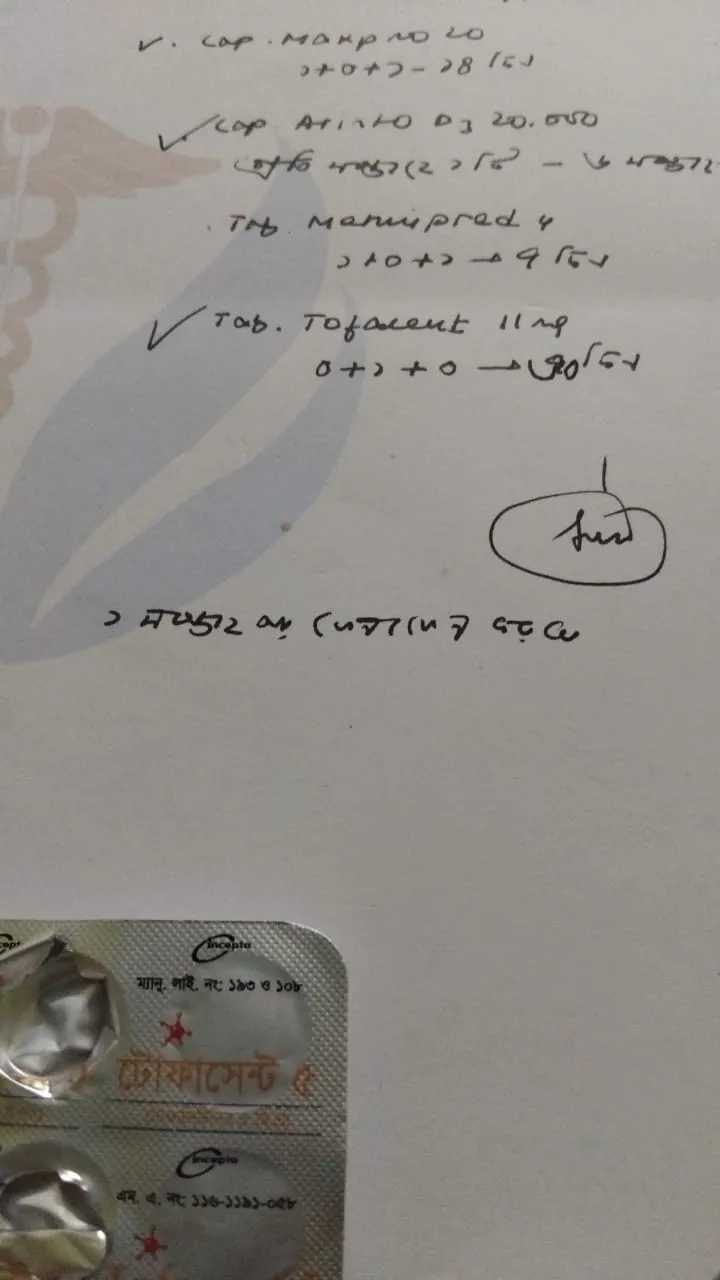 ✓. Cap. Maxpro 20
১+০+১ – ১৪ দিন
✓ Cap Arinto D3 20.000
প্রতি সপ্তাহে ১টি – ৬ সপ্তাহ
Tab.
১+০+১ → ৭ দিন
✓ Tab. Tofacent 11 mg
০+১+০ → ৩০ দিন
১ সপ্তাহ পর
Incepta
ম্যানু. লাই. নং: ১৯৩ ও ১০৮
টোফাসেন্ট ৫
Incepta
এম. এ. নং: